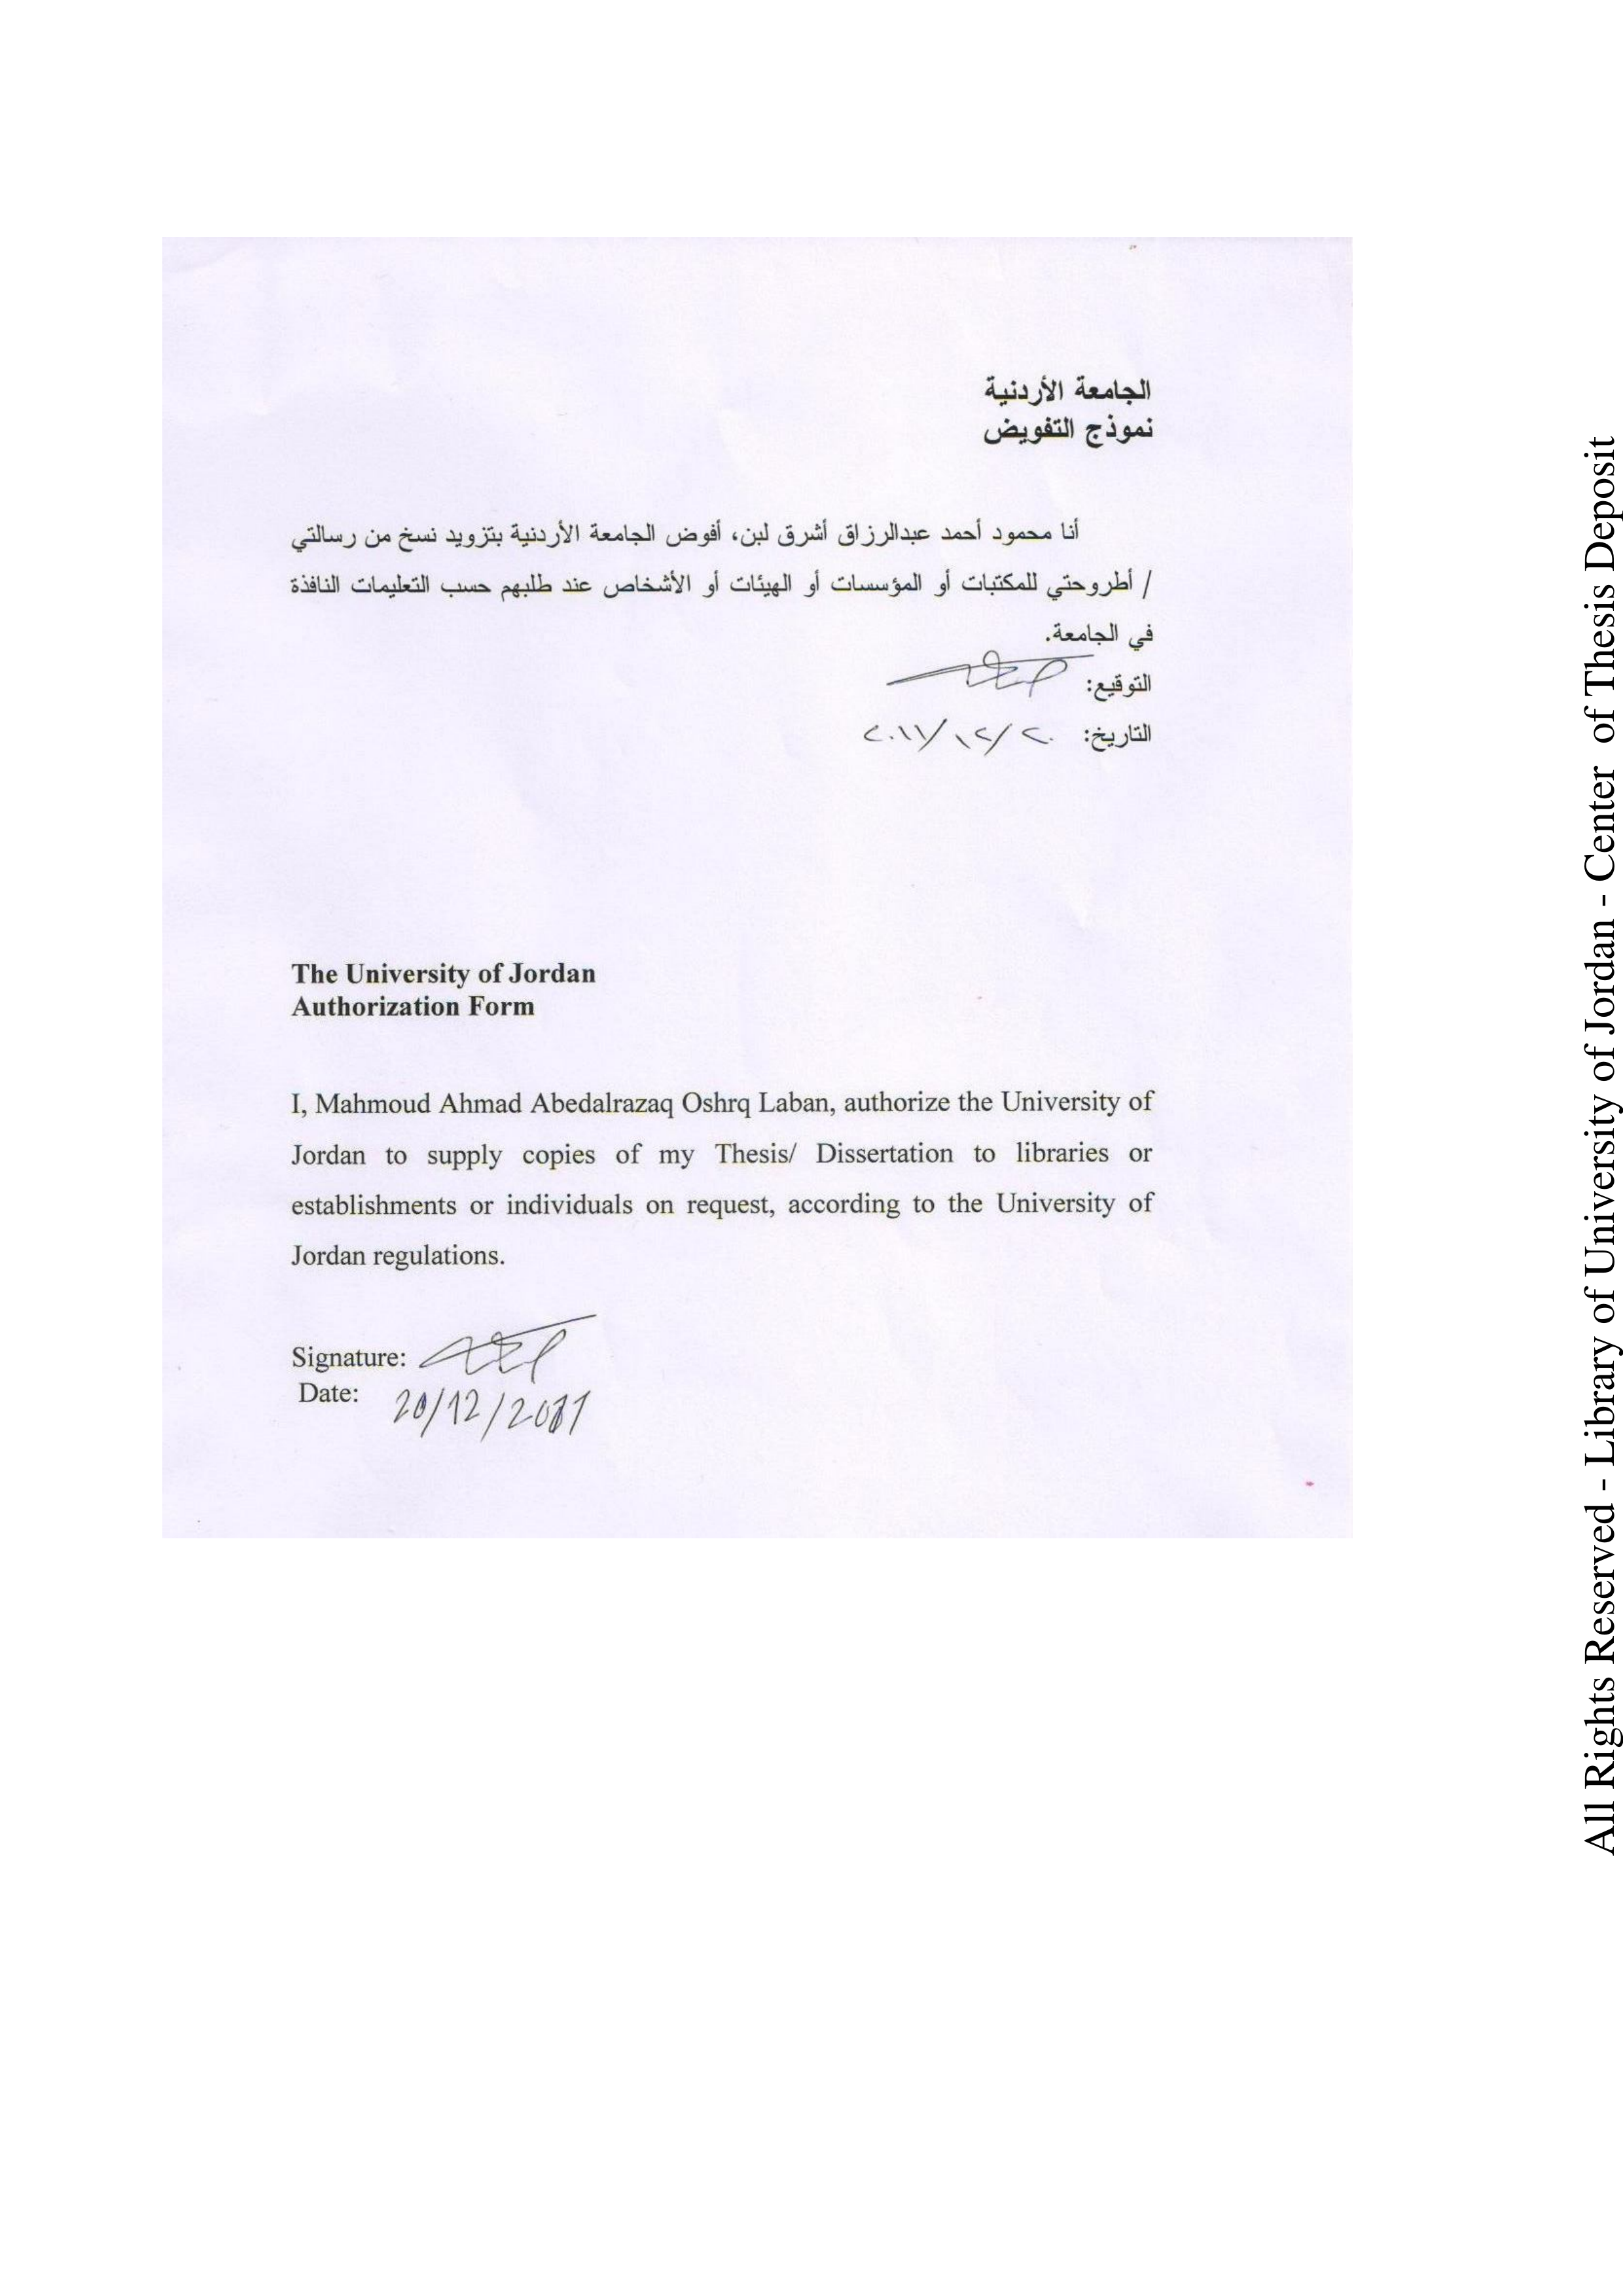 الجامعة الأردنية
نموذج التفويض
أنا محمود أحمد عبدالرزاق أشرق لبن، أفوض الجامعة الأردنية بتزويد نسخ من رسالتي
/ أطروحتي للمكتبات أو المؤسسات أو الهيئات أو الأشخاص عند طلبهم حسب التعليمات النافذة
في الجامعة.
التوقيع:
التاريخ: ٢٠/١٢/٢٠١١
The University of Jordan
Authorization Form
I, Mahmoud Ahmad Abedalrazaq Oshrq Laban, authorize the University of
Jordan to supply copies of my Thesis/ Dissertation to libraries or
establishments or individuals on request, according to the University of
Jordan regulations.
Signature:
Date: 20/12/2011
All Rights Reserved - Library of University of Jordan - Center of Thesis Deposit